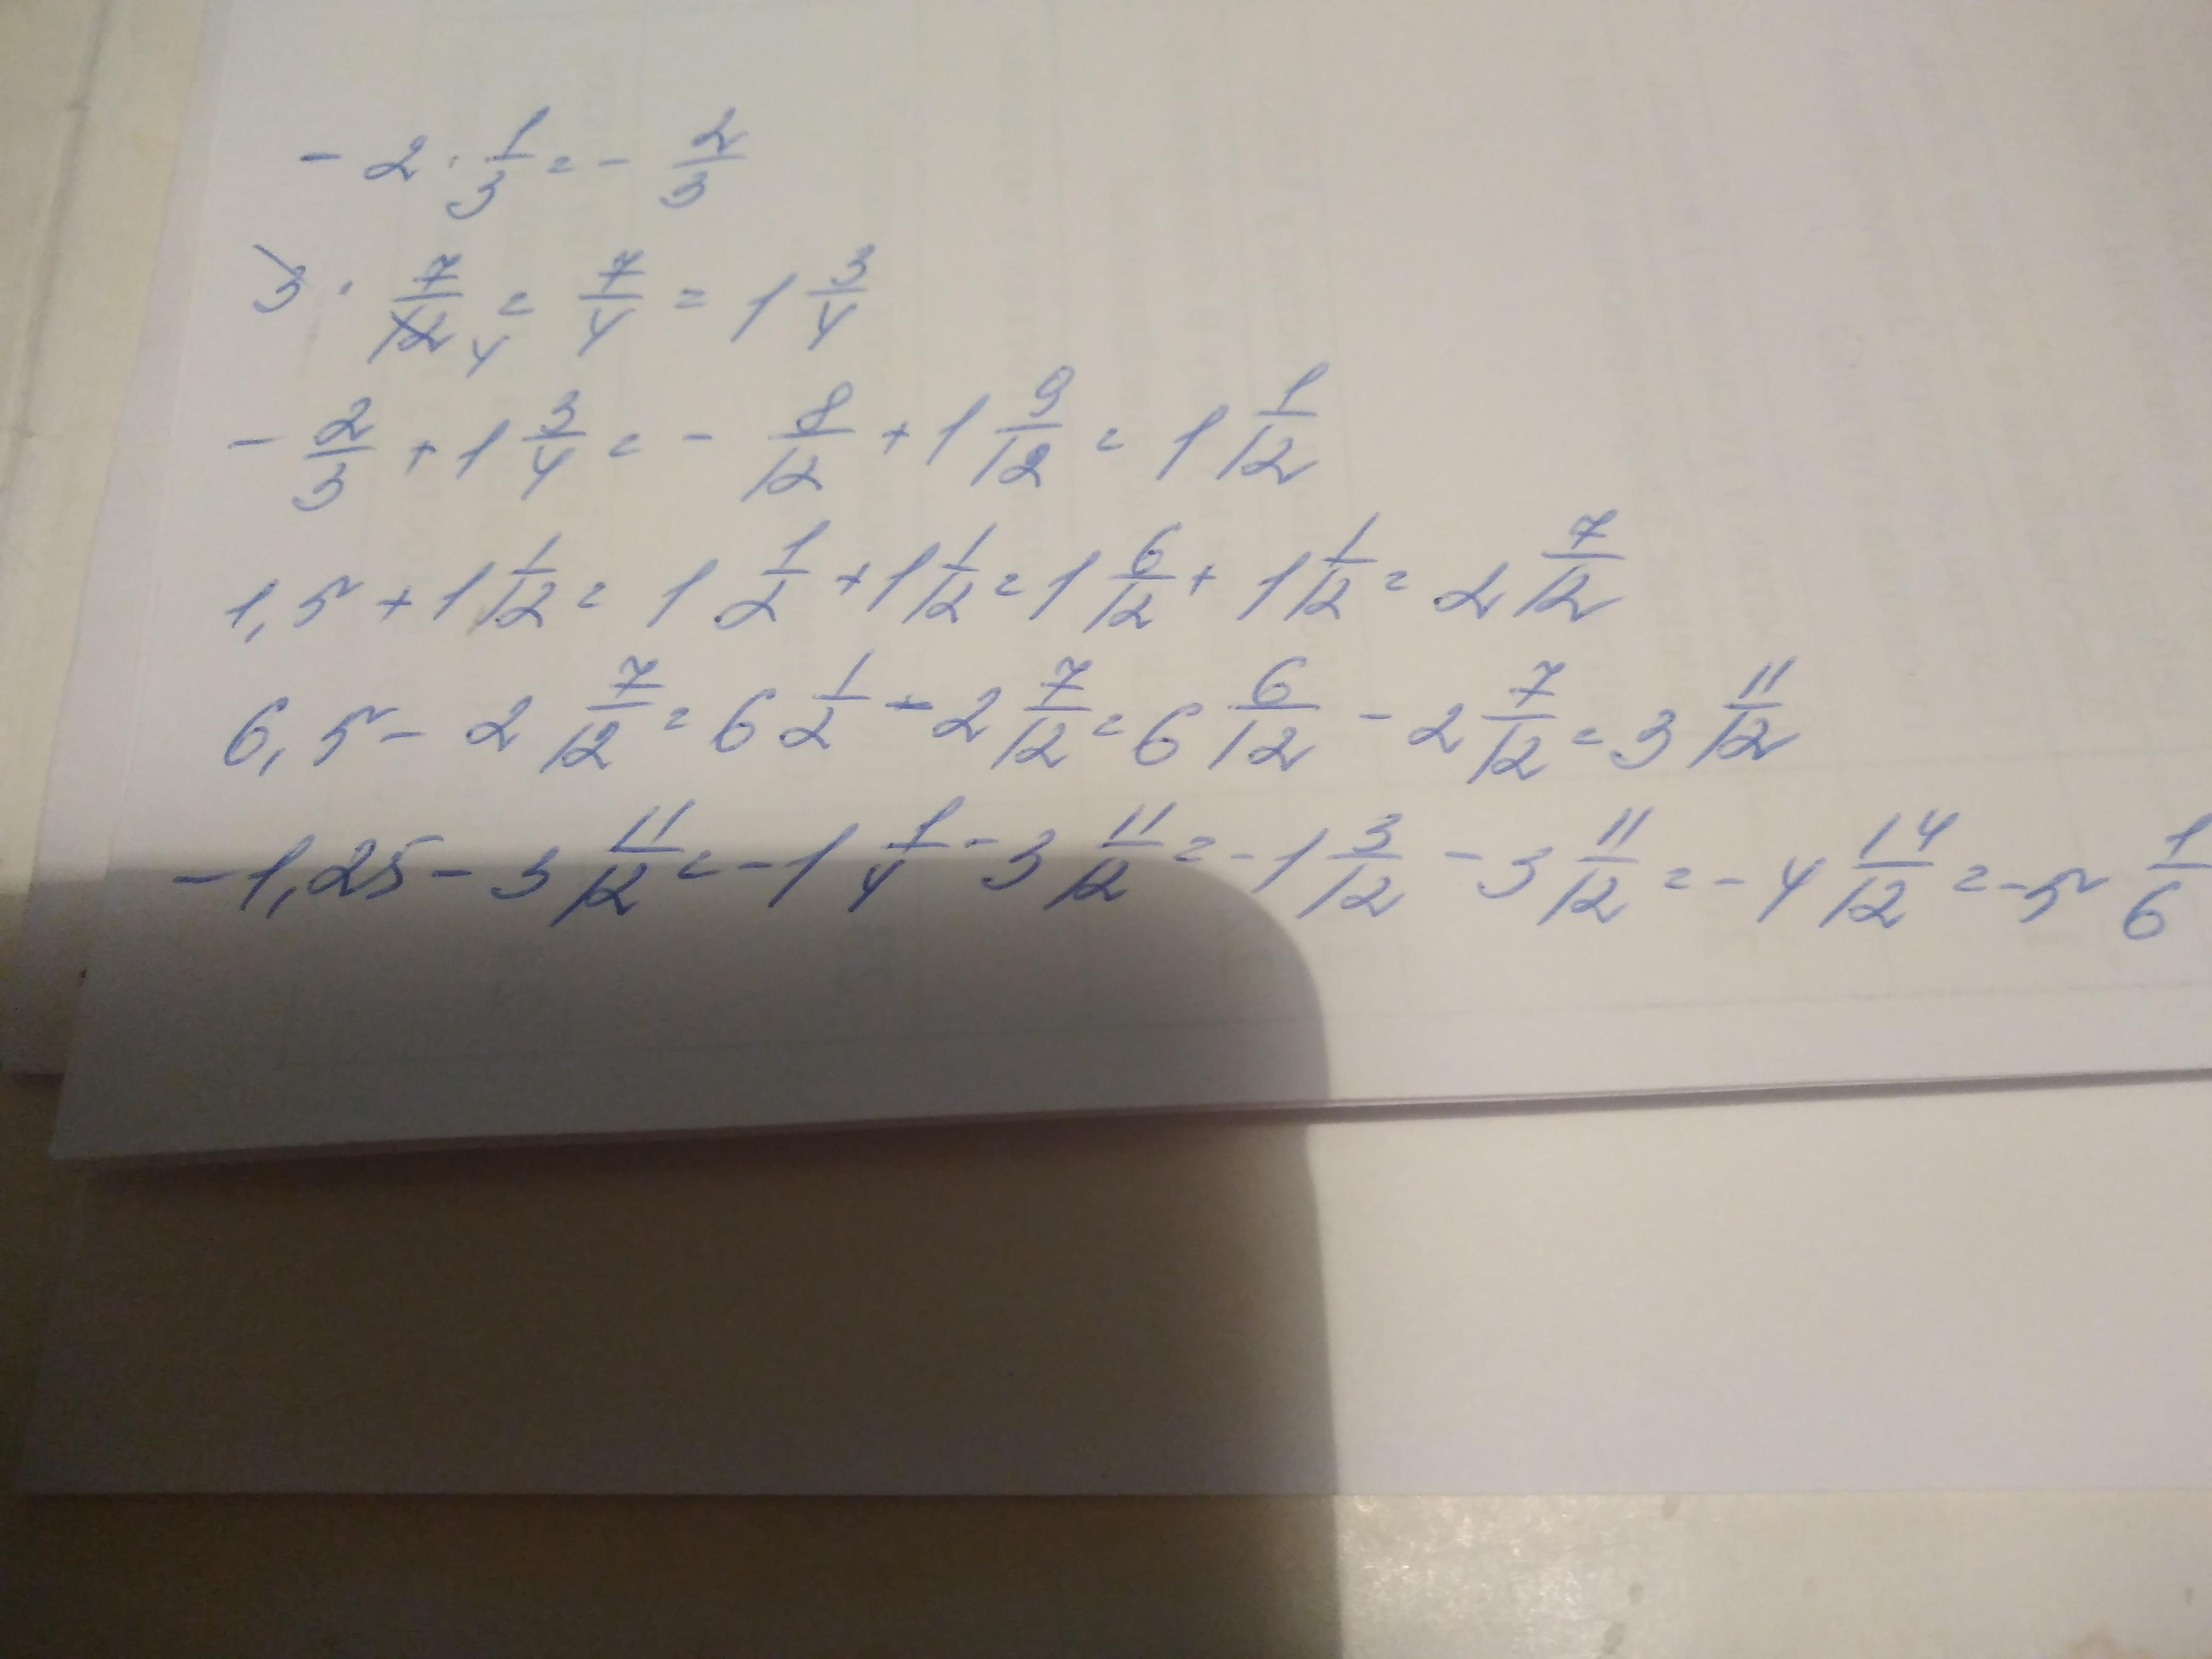 - 2 · 1/3 = - 2/3
3 · 7/12 4 = 7/4 = 1 3/4
- 2/3 + 1 3/4 = - 8/12 + 1 9/12 = 1 1/12
1,5 + 1 1/12 = 1 1/2 + 1 1/12 = 1 6/12 + 1 1/12 = 2 7/12
6,5 - 2 7/12 = 6 1/2 - 2 7/12 = 6 6/12 - 2 7/12 = 3 11/12
- 1,25 - 3 11/12 = - 1 1/4 - 3 11/12 = - 1 3/12 - 3 11/12 = - 4 14/12 = - 5 1/6